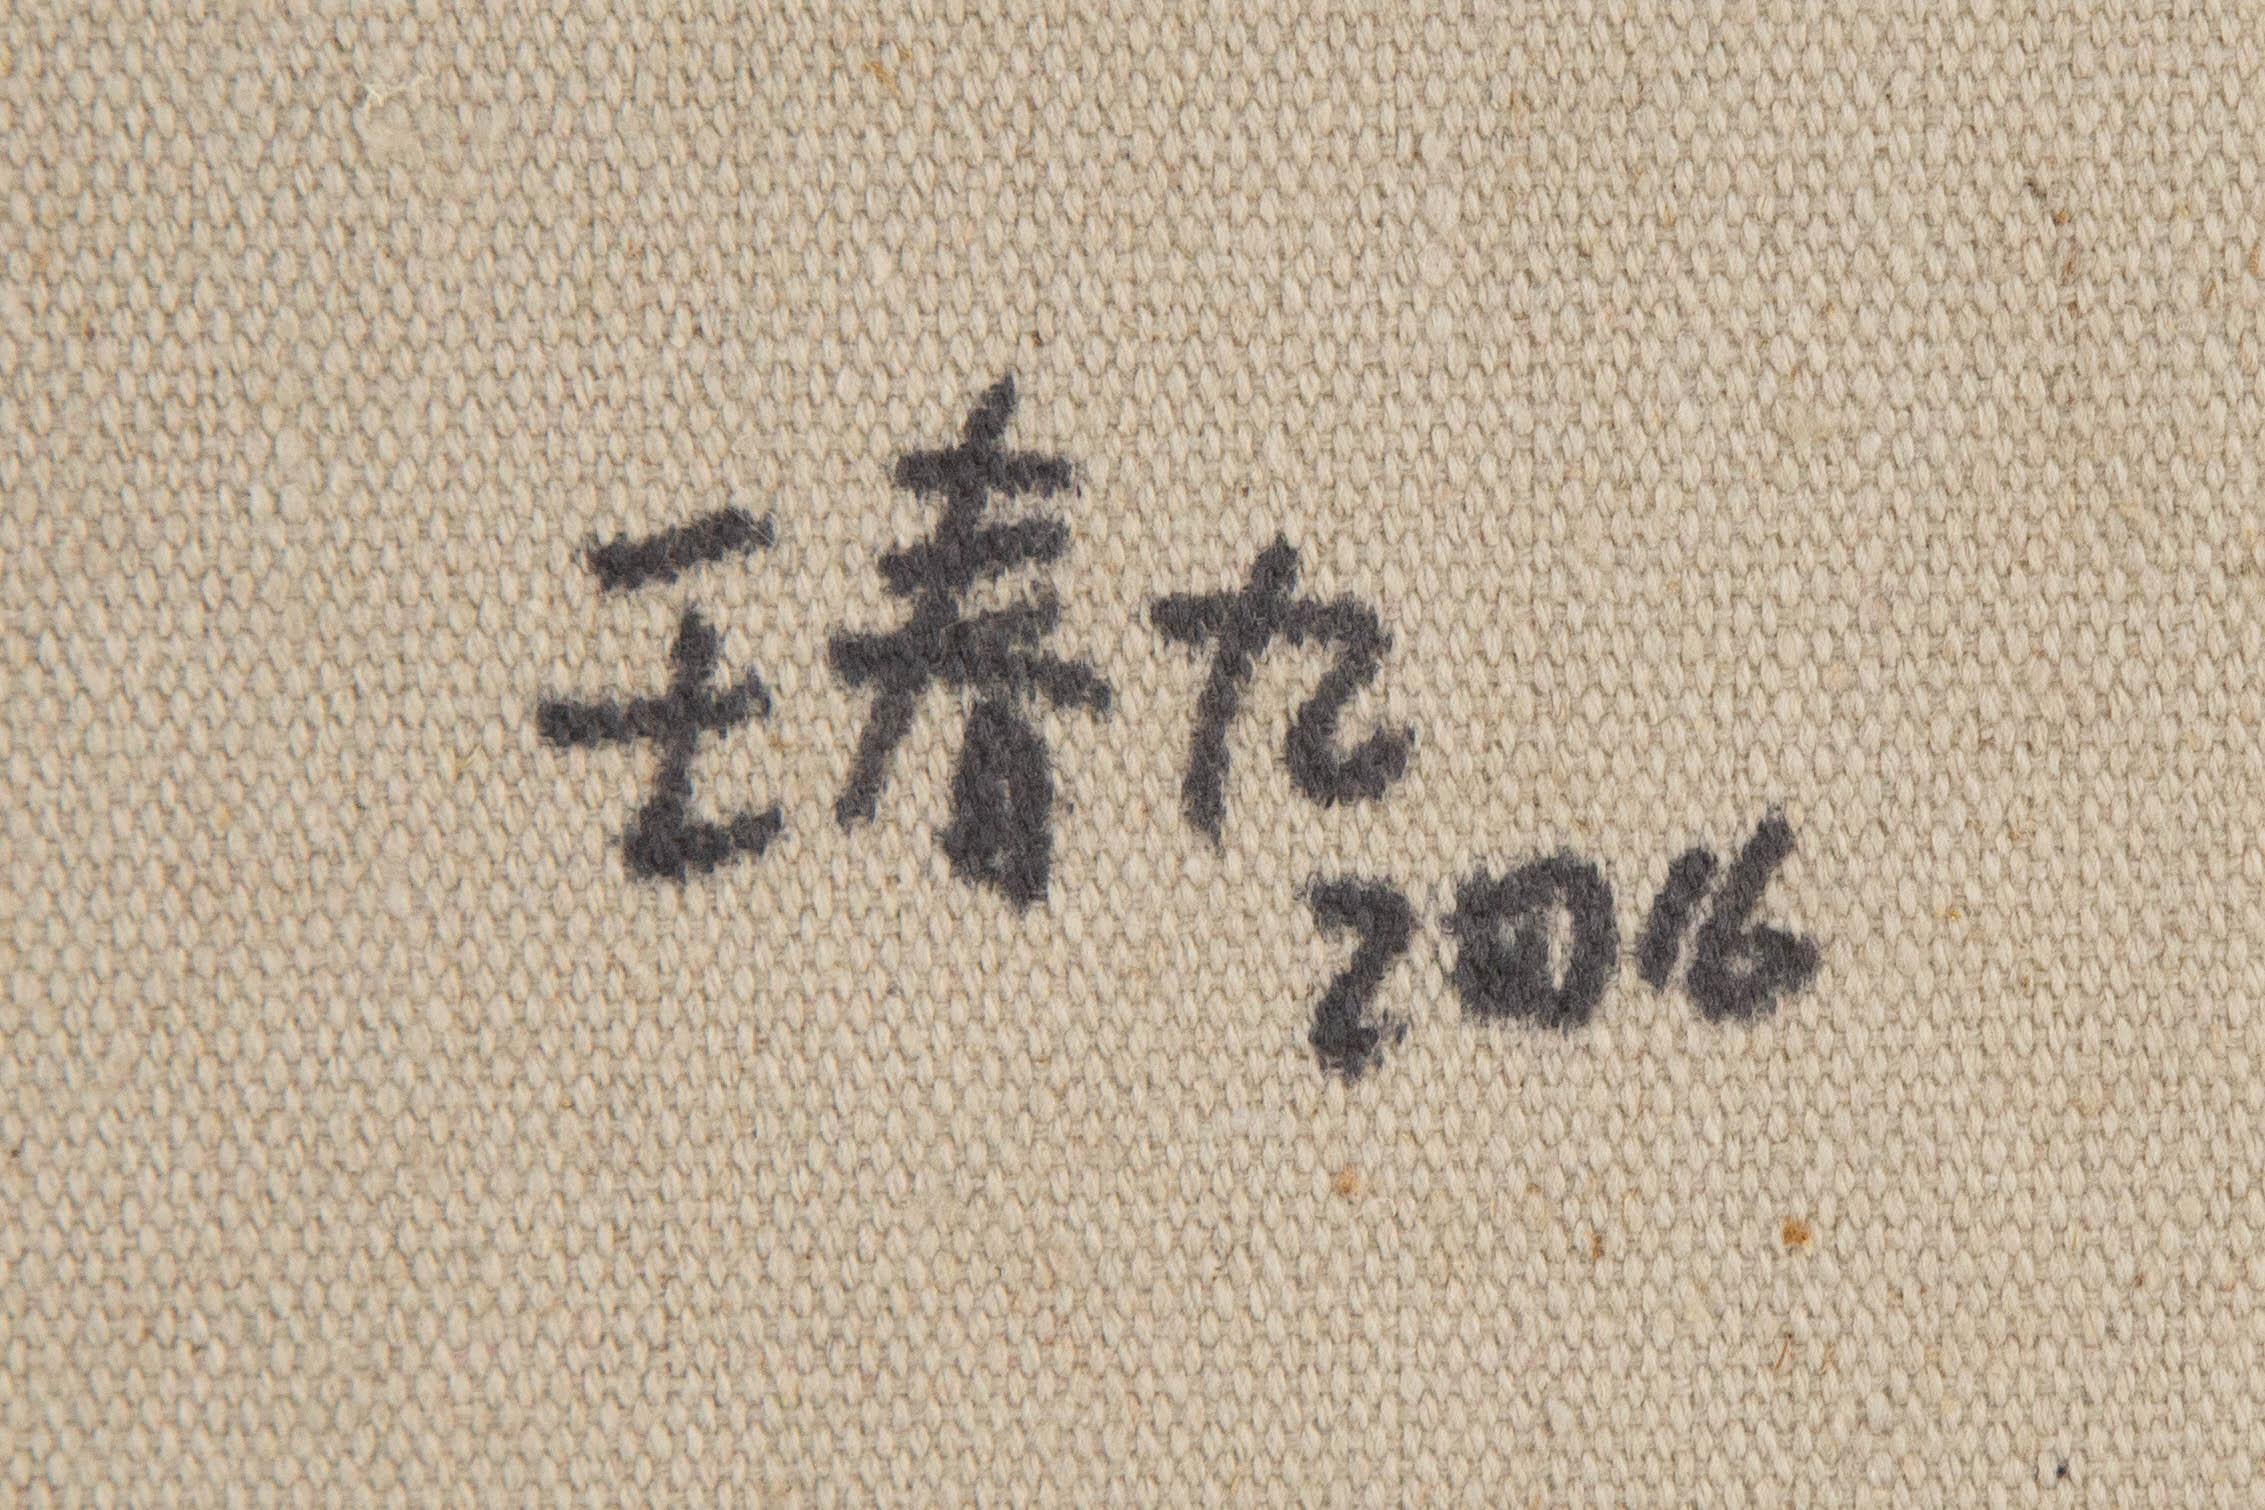 王春九
2016